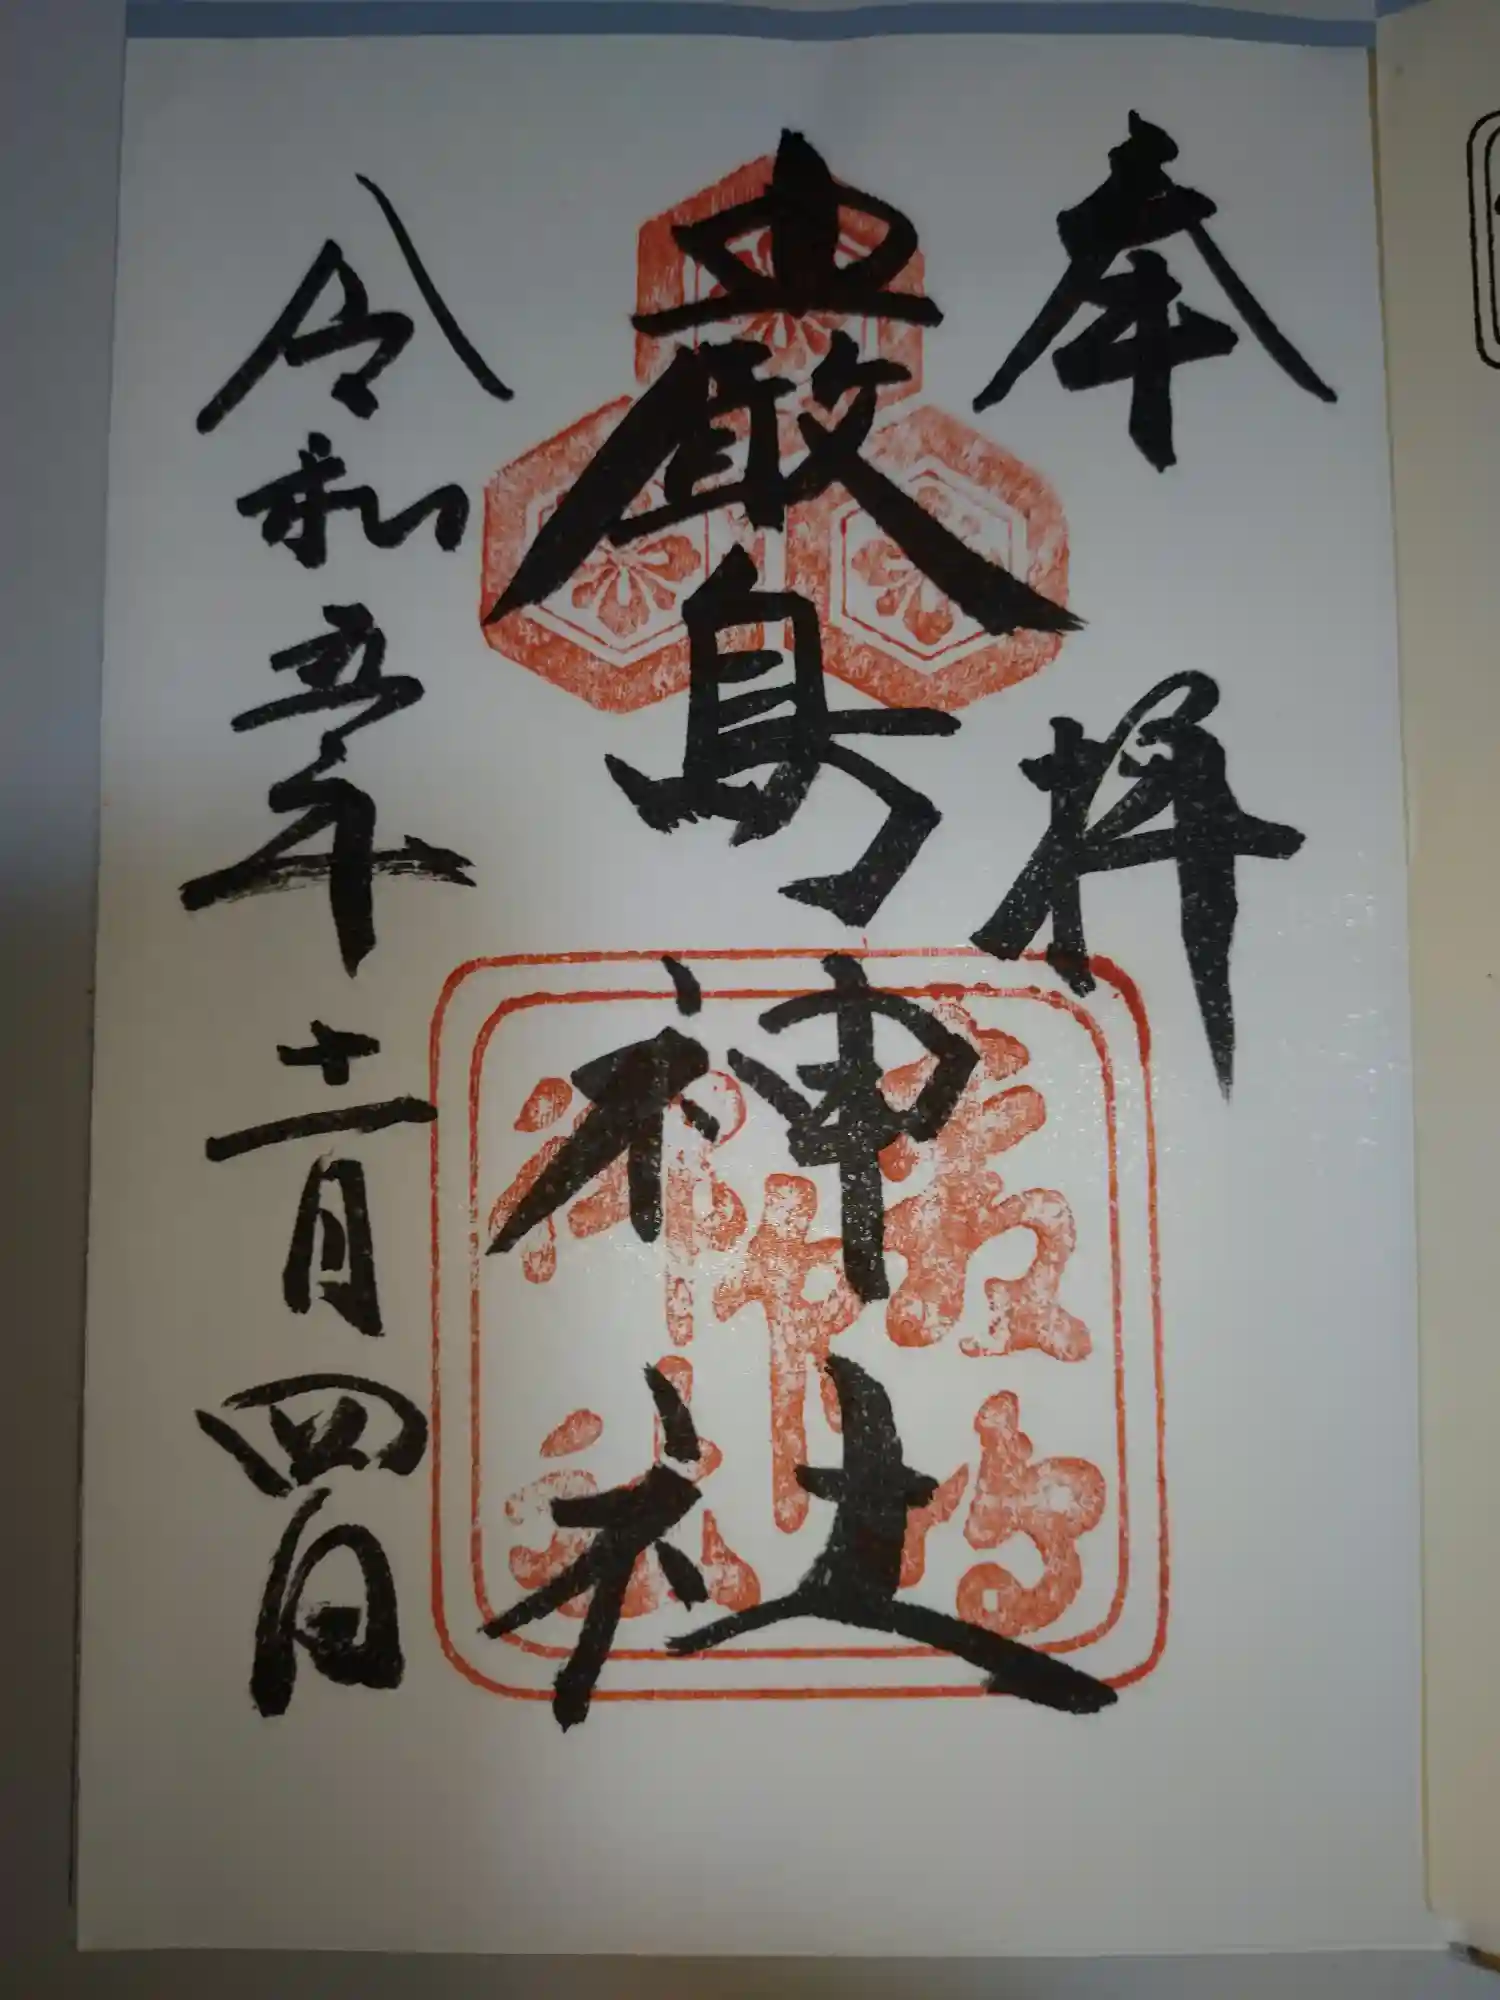 奉拝
嚴島神社
令和五年十一月四日
嚴島神社